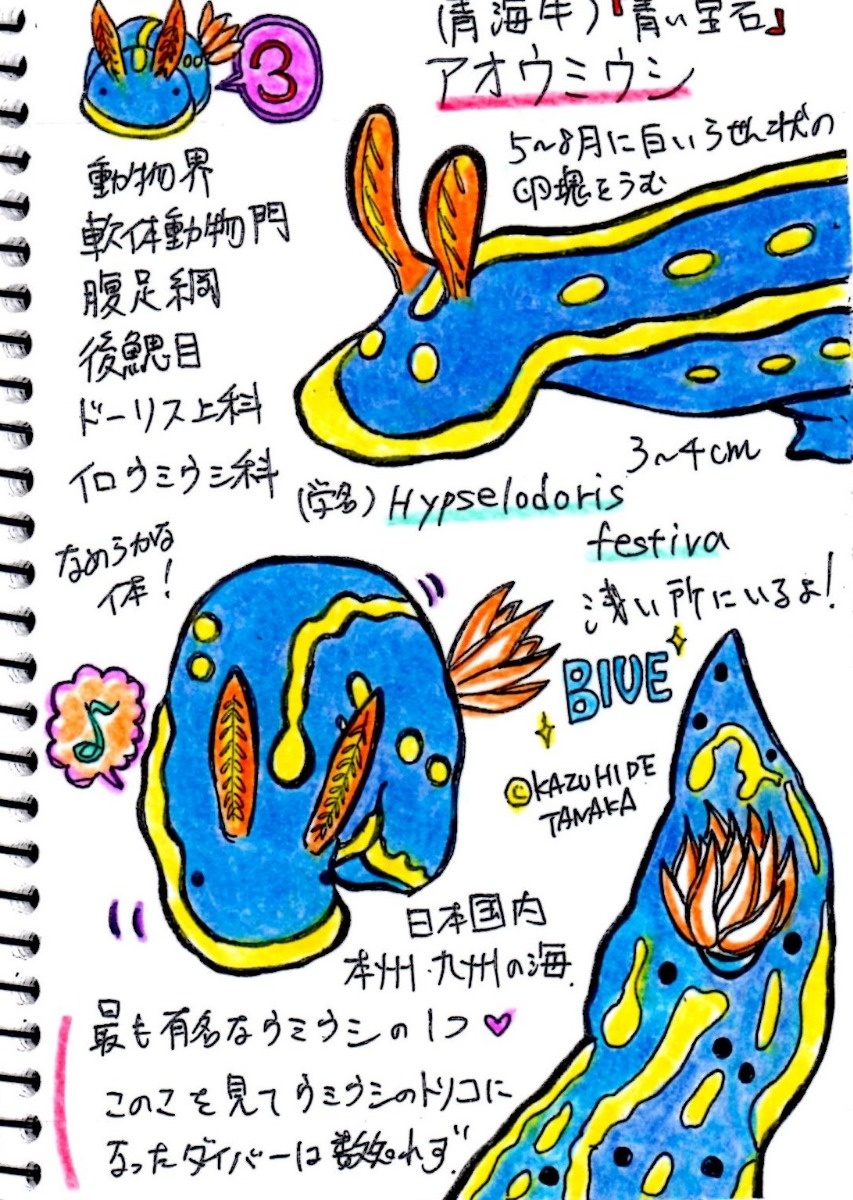 3
(青海牛)『青い宝石』
アオウミウシ
5~8月に白いらせん状の
卵塊をうむ
動物界
軟体動物門
腹足綱
後鰓目
ドーリス上科
イロウミウシ科
3~4cm
(学名) Hypselodoris
festiva
なめらかな
体!
浅い所にいるよ!
BlUE
©KAZUHIDE
TANAKA
日本国内
本州・九州の海.
最も有名なウミウシの1つ♥
このこを見てウミウシのトリコに
なったダイバーは数知れず‼